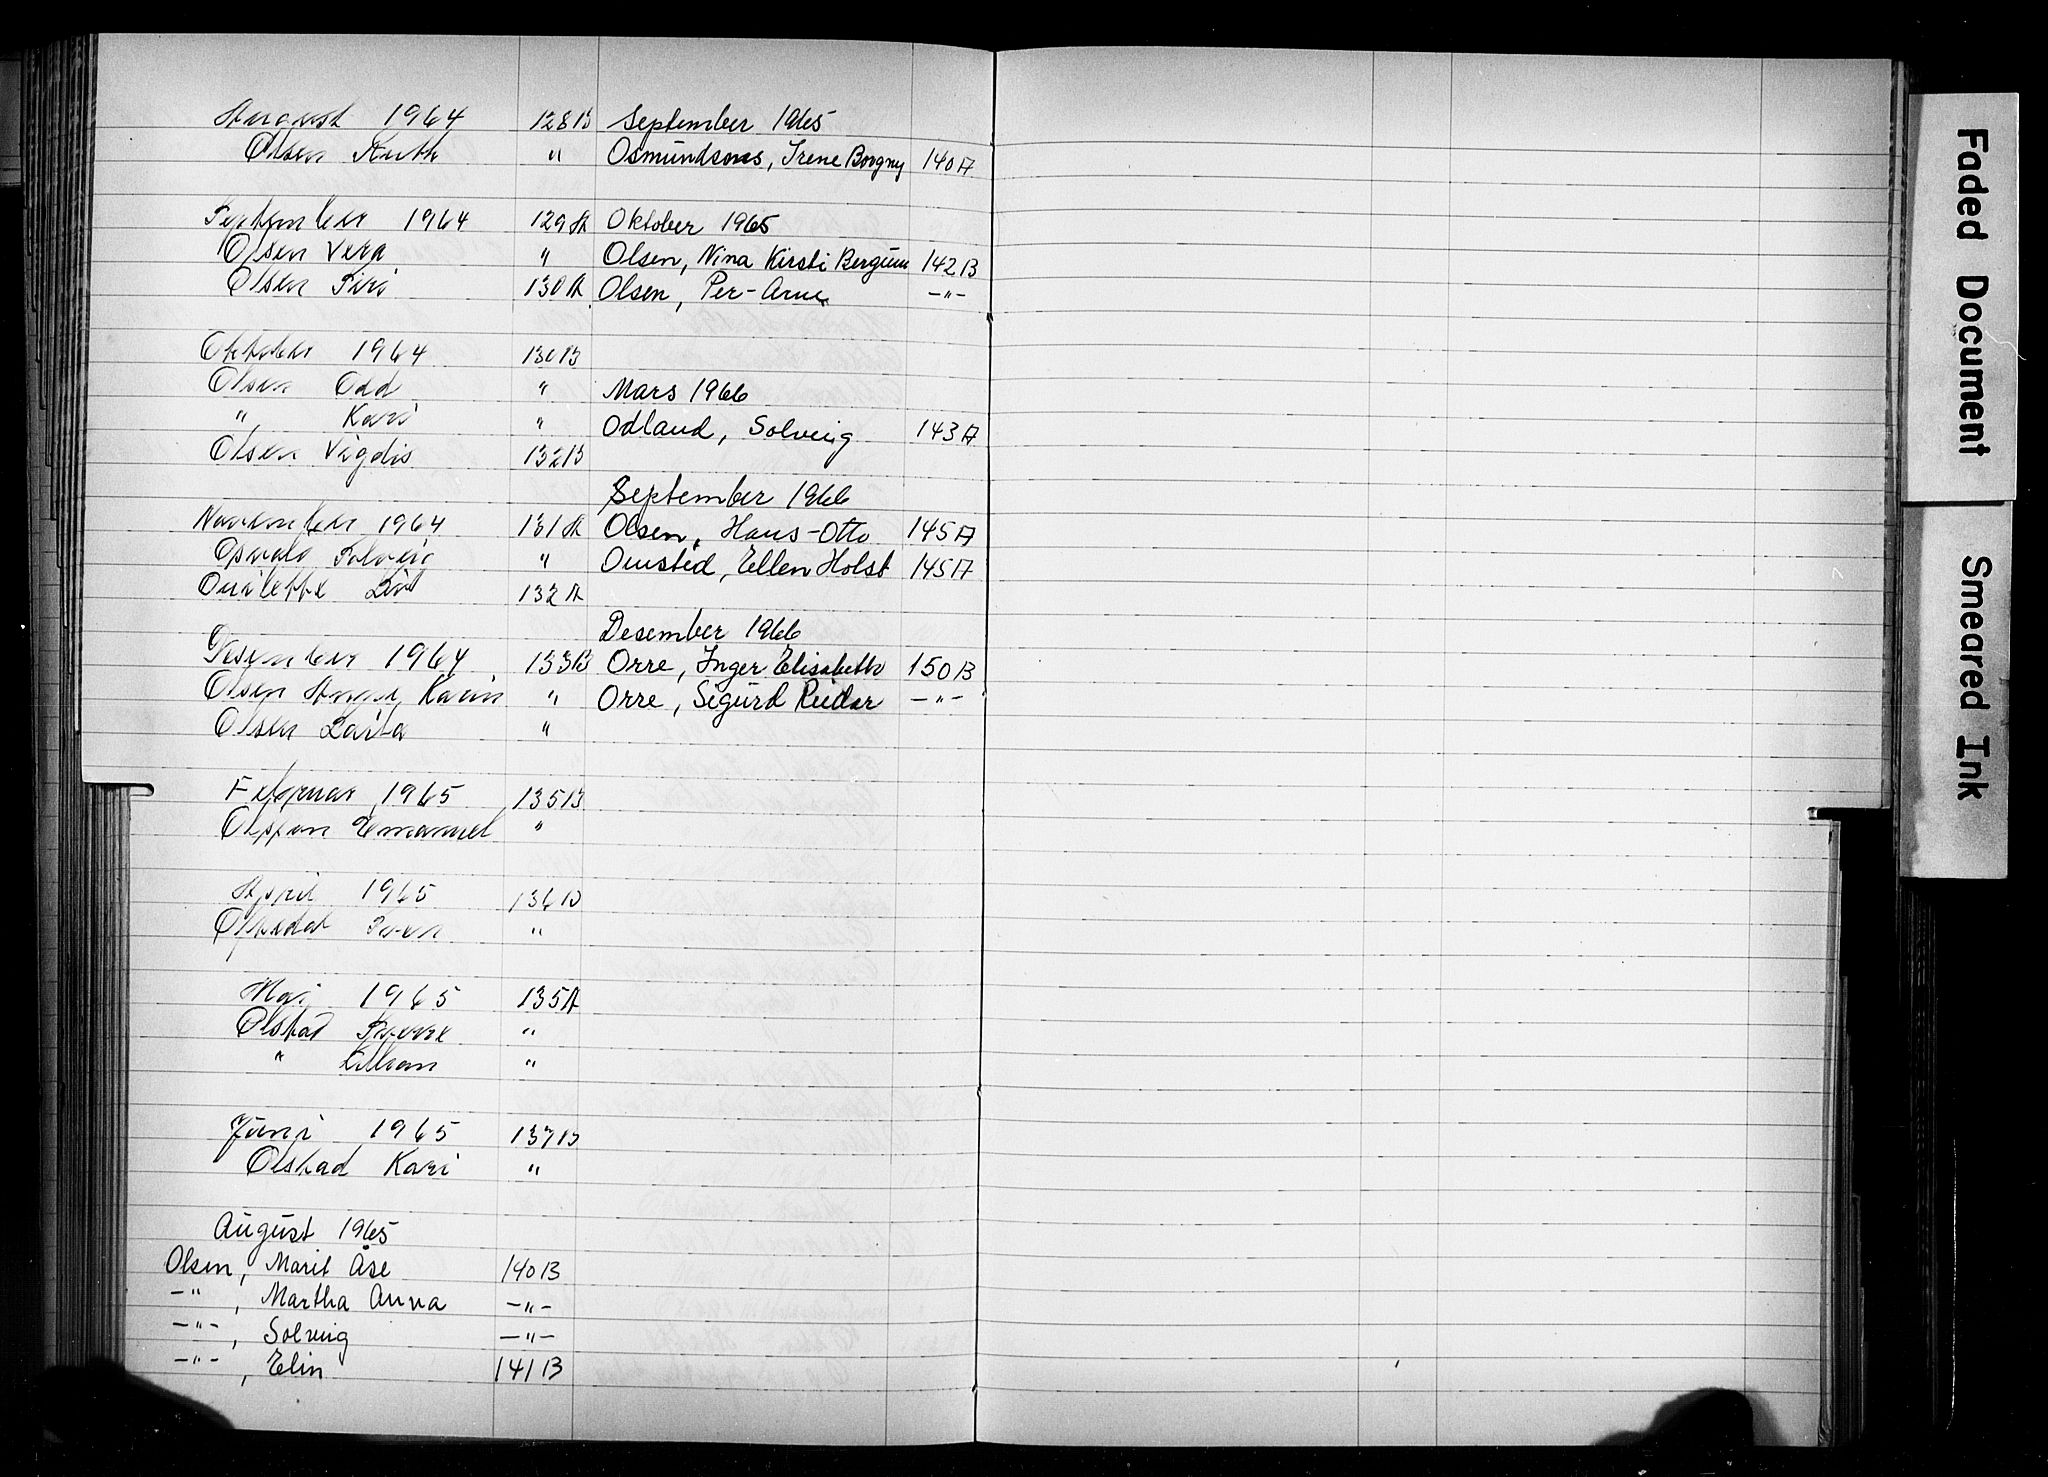 August 1964 128B
Olsen Ruth "
September 1964 129A
Olsen Vera "
Olsen Siri 130A
Oktober 1964 130B
Olsen Odd "
" Kari "
Olsen Vigdis 132B
November 1964 131A
Osvald Solveig "
Ouilette Liv 132A
Desember 1964 133B
Olsen Karin "
Olsen Laila "
Februar 1965 135B
Emanuel "
April 1965 136B
Opsedal "
Mai 1965 135A
Olstad Sverre "
" Lillian "
Juni 1965 137B
Olstad Kari "
August 1965
Olsen, Marit Åse 140B
-"-, Martha Anna -"-
-"-, Solveig -"-
-"-, Elin 141B
September 1965
Osmundsons, Irene Borgny 140A
Oktober 1965
Olsen, Nina Kirsti Bergum 142B
Olsen, Per-Arne -"-
Mars 1966
Odland, Solveig 143A
September 1966
Olsen, Hans-Otto 145A
Omsted, Ellen Holst 145A
Desember 1966
Orre, Inger Elisabeth 150B
Orre, Sigurd Reidar -"-
Faded Document
Smeared Ink